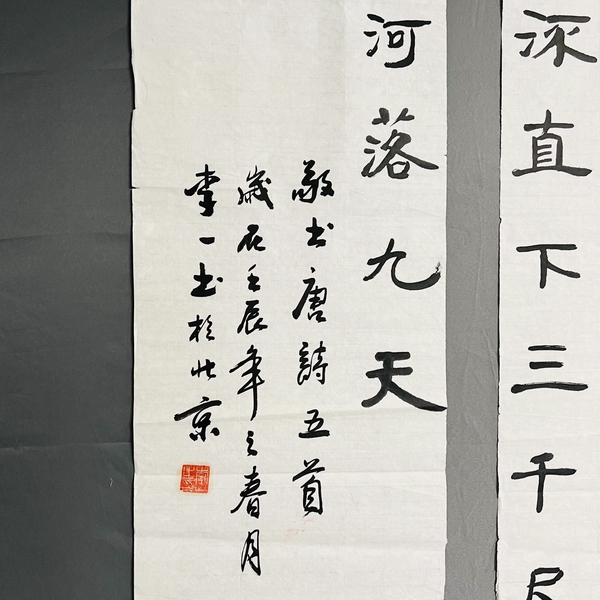 流直下三千尺
河落九天
敬书唐詩五首
歲在壬辰年之春月
李一书於北京